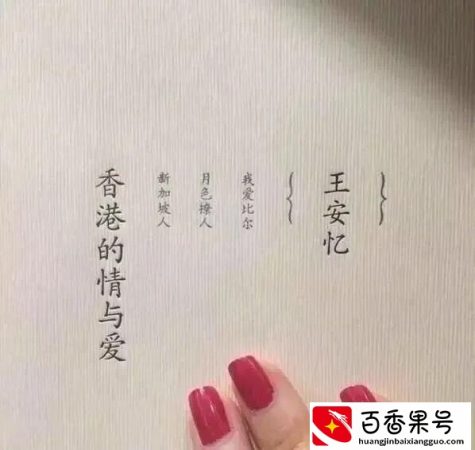 王安忆
我爱比尔
月色撩人
新加坡人
香港的情与爱
百香果号
huangjinbaixiangguo.com